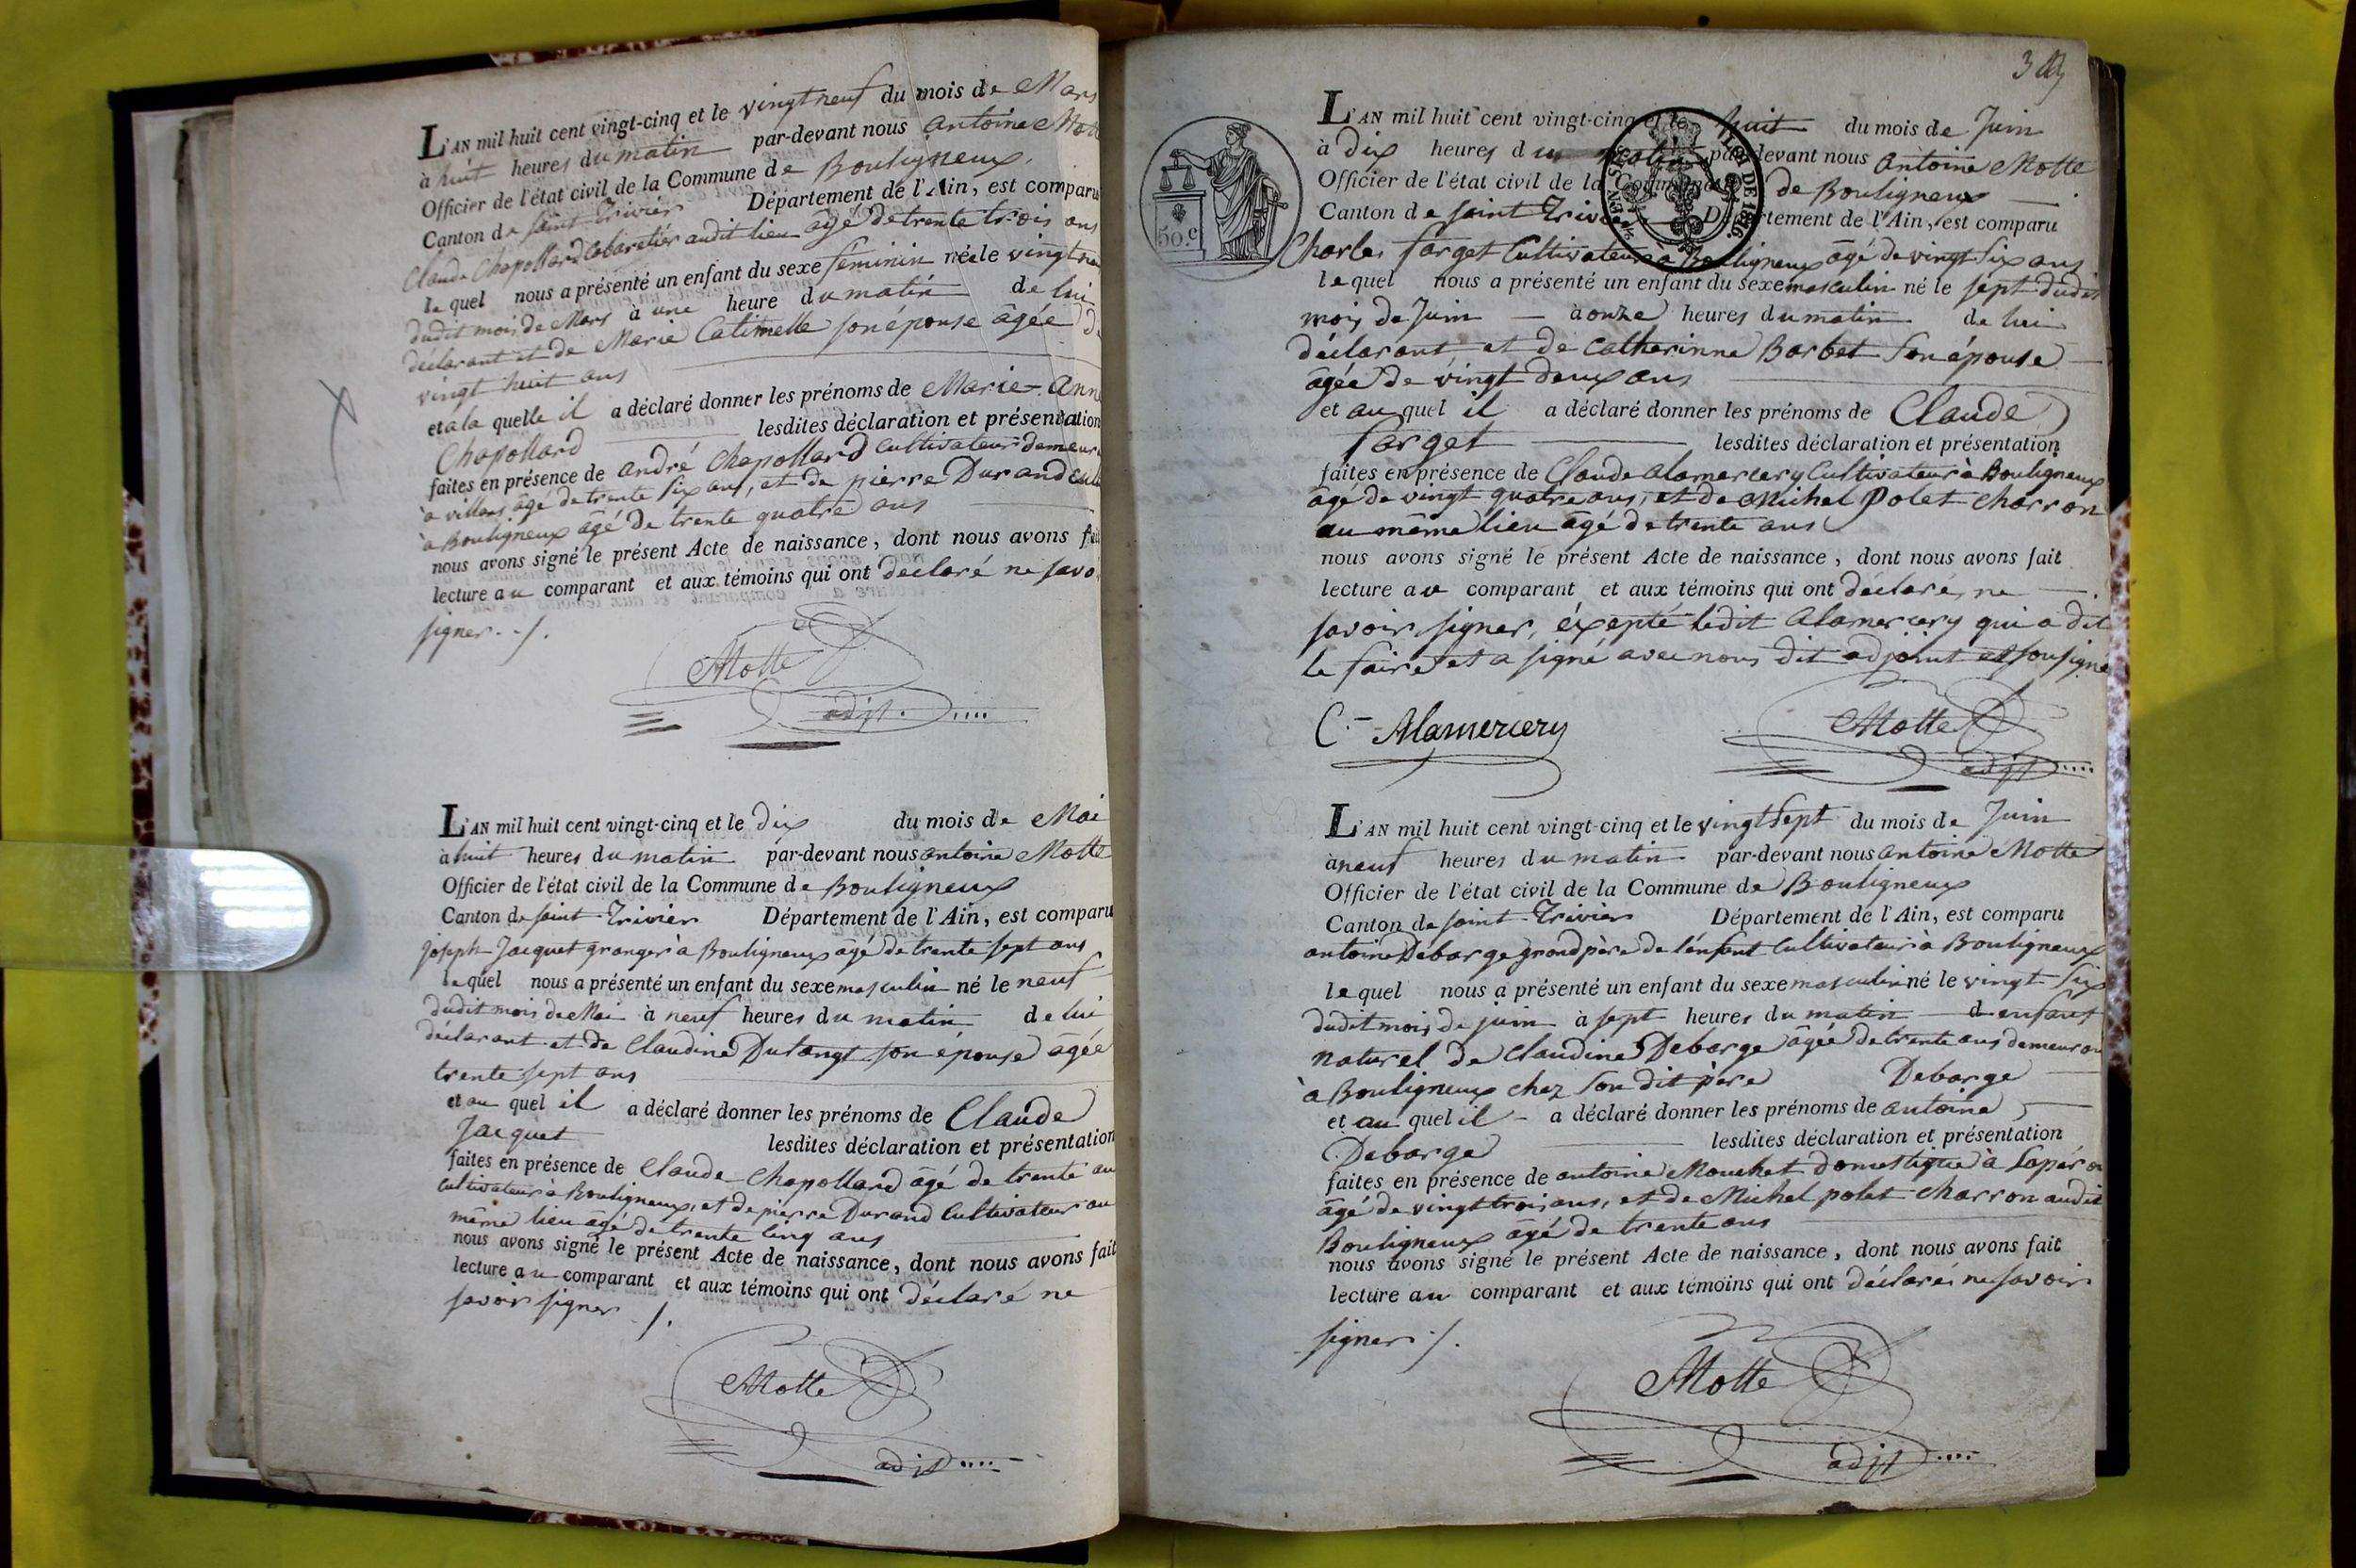 L'AN mil huit cent vingt-cinq et le vingt neuf du mois de Mars
à huit heures du matin par-devant nous antoine Motte
Officier de l'état civil de la Commune de Bouligneux.
Canton de saint Trivier Département de l'Ain, est comparu
Claude Chapollard Cabaretier audit lieu âgé de trente trois ans
lequel nous a présenté un enfant du sexe feminin née le vingt neu
dudit mois de Mars à une heure du matin de lui
déclarant et de Marie Catimelle son épouse âgée de
vingt huit ans
et a la quelle il a déclaré donner les prénoms de Marie-Anne
Chapollard lesdites déclaration et présentation
faites en présence de andré Chapollard Cultivateur demeur
à villars âgé de trente six ans, et de pierre Durand cult
à Bouligneux âgé de trente quatre ans
nous avons signé le présent Acte de naissance, dont nous avons fait
lecture au comparant et aux témoins qui ont declaré ne savo
signer ./.
Motte
adjt.
L'AN mil huit cent vingt-cinq et le dix du mois de Mai
à huit heures du matin par-devant nous antoine Motte
Officier de l'état civil de la Commune de Bouligneux
Canton de saint Trivier Département de l'Ain, est comparu
joseph Jacquet granger à Bouligneux âgé de trente sept ans
lequel nous a présenté un enfant du sexe masculin né le neuf
dudit mois de Mai à neuf heures du matin de lui
déclarant et de Claudine Dutangt son épouse âgée
trente sept ans
et au quel il a déclaré donner les prénoms de Claude
Jacquet lesdites déclaration et présentation
faites en présence de Claude Chapollard âgé de trente ans
cultivateur à Bouligneux, et de pierre Durand Cultivateur au
même lieu âgé de trente cinq ans
nous avons signé le présent Acte de naissance, dont nous avons fait
lecture au comparant et aux témoins qui ont déclaré ne
savoir signer ./.
Motte
adjt
L'AN mil huit cent vingt-cinq et le huit du mois de Juin
à dix heures du matin par-devant nous antoine Motte
Officier de l'état civil de la Commune de Bouligneux
Canton de saint Trivier Département de l'Ain, est comparu
50.c
LOI DE 1816.
Charles farget Cultivateur à Bouligneux âgé de vingt six ans
lequel nous a présenté un enfant du sexe masculin né le sept dudit
mois de Juin à onze heures du matin de lui
déclarant, et de Catherinne Barbet son épouse
âgée de vingt deux ans
et au quel il a déclaré donner les prénoms de Claude
farget lesdites déclaration et présentation
faites en présence de Claude alamercery Cultivateur à Bouligneux
âgé de vingt quatre ans, et de Michel Polet charron
au même lieu âgé de trente ans
nous avons signé le présent Acte de naissance, dont nous avons fait
lecture au comparant et aux témoins qui ont déclaré, ne
savoir signer, éxepté ledit alamercery qui a dit
le faire et a signé avec nous dit adjoint et sousigné
C. Alamercery
Motte
adjt
L'AN mil huit cent vingt-cinq et le vingt sept du mois de Juin
à neuf heures du matin par-devant nous antoine Motte
Officier de l'état civil de la Commune de Bouligneux
Canton de saint Trivier Département de l'Ain, est comparu
antoine Debarge grand père de l'enfant Cultivateur à Bouligneux
lequel nous a présenté un enfant du sexe masculin né le vingt six
dudit mois de juin à sept heures du matin d enfant
naturel de Claudine Debarge âgée de trente ans demeuran
à Bouligneux chez son dit père Debarge
et au quel il a déclaré donner les prénoms de antoine
Debarge lesdites déclaration et présentation
faites en présence de antoine Mouchet domestique à Lapérou
âgé de vingt trois ans, et de Michel polet charron audit
Bouligneux âgé de trente ans
nous avons signé le présent Acte de naissance, dont nous avons fait
lecture au comparant et aux témoins qui ont déclaré ne savoir
signer ./.
Motte
adjt